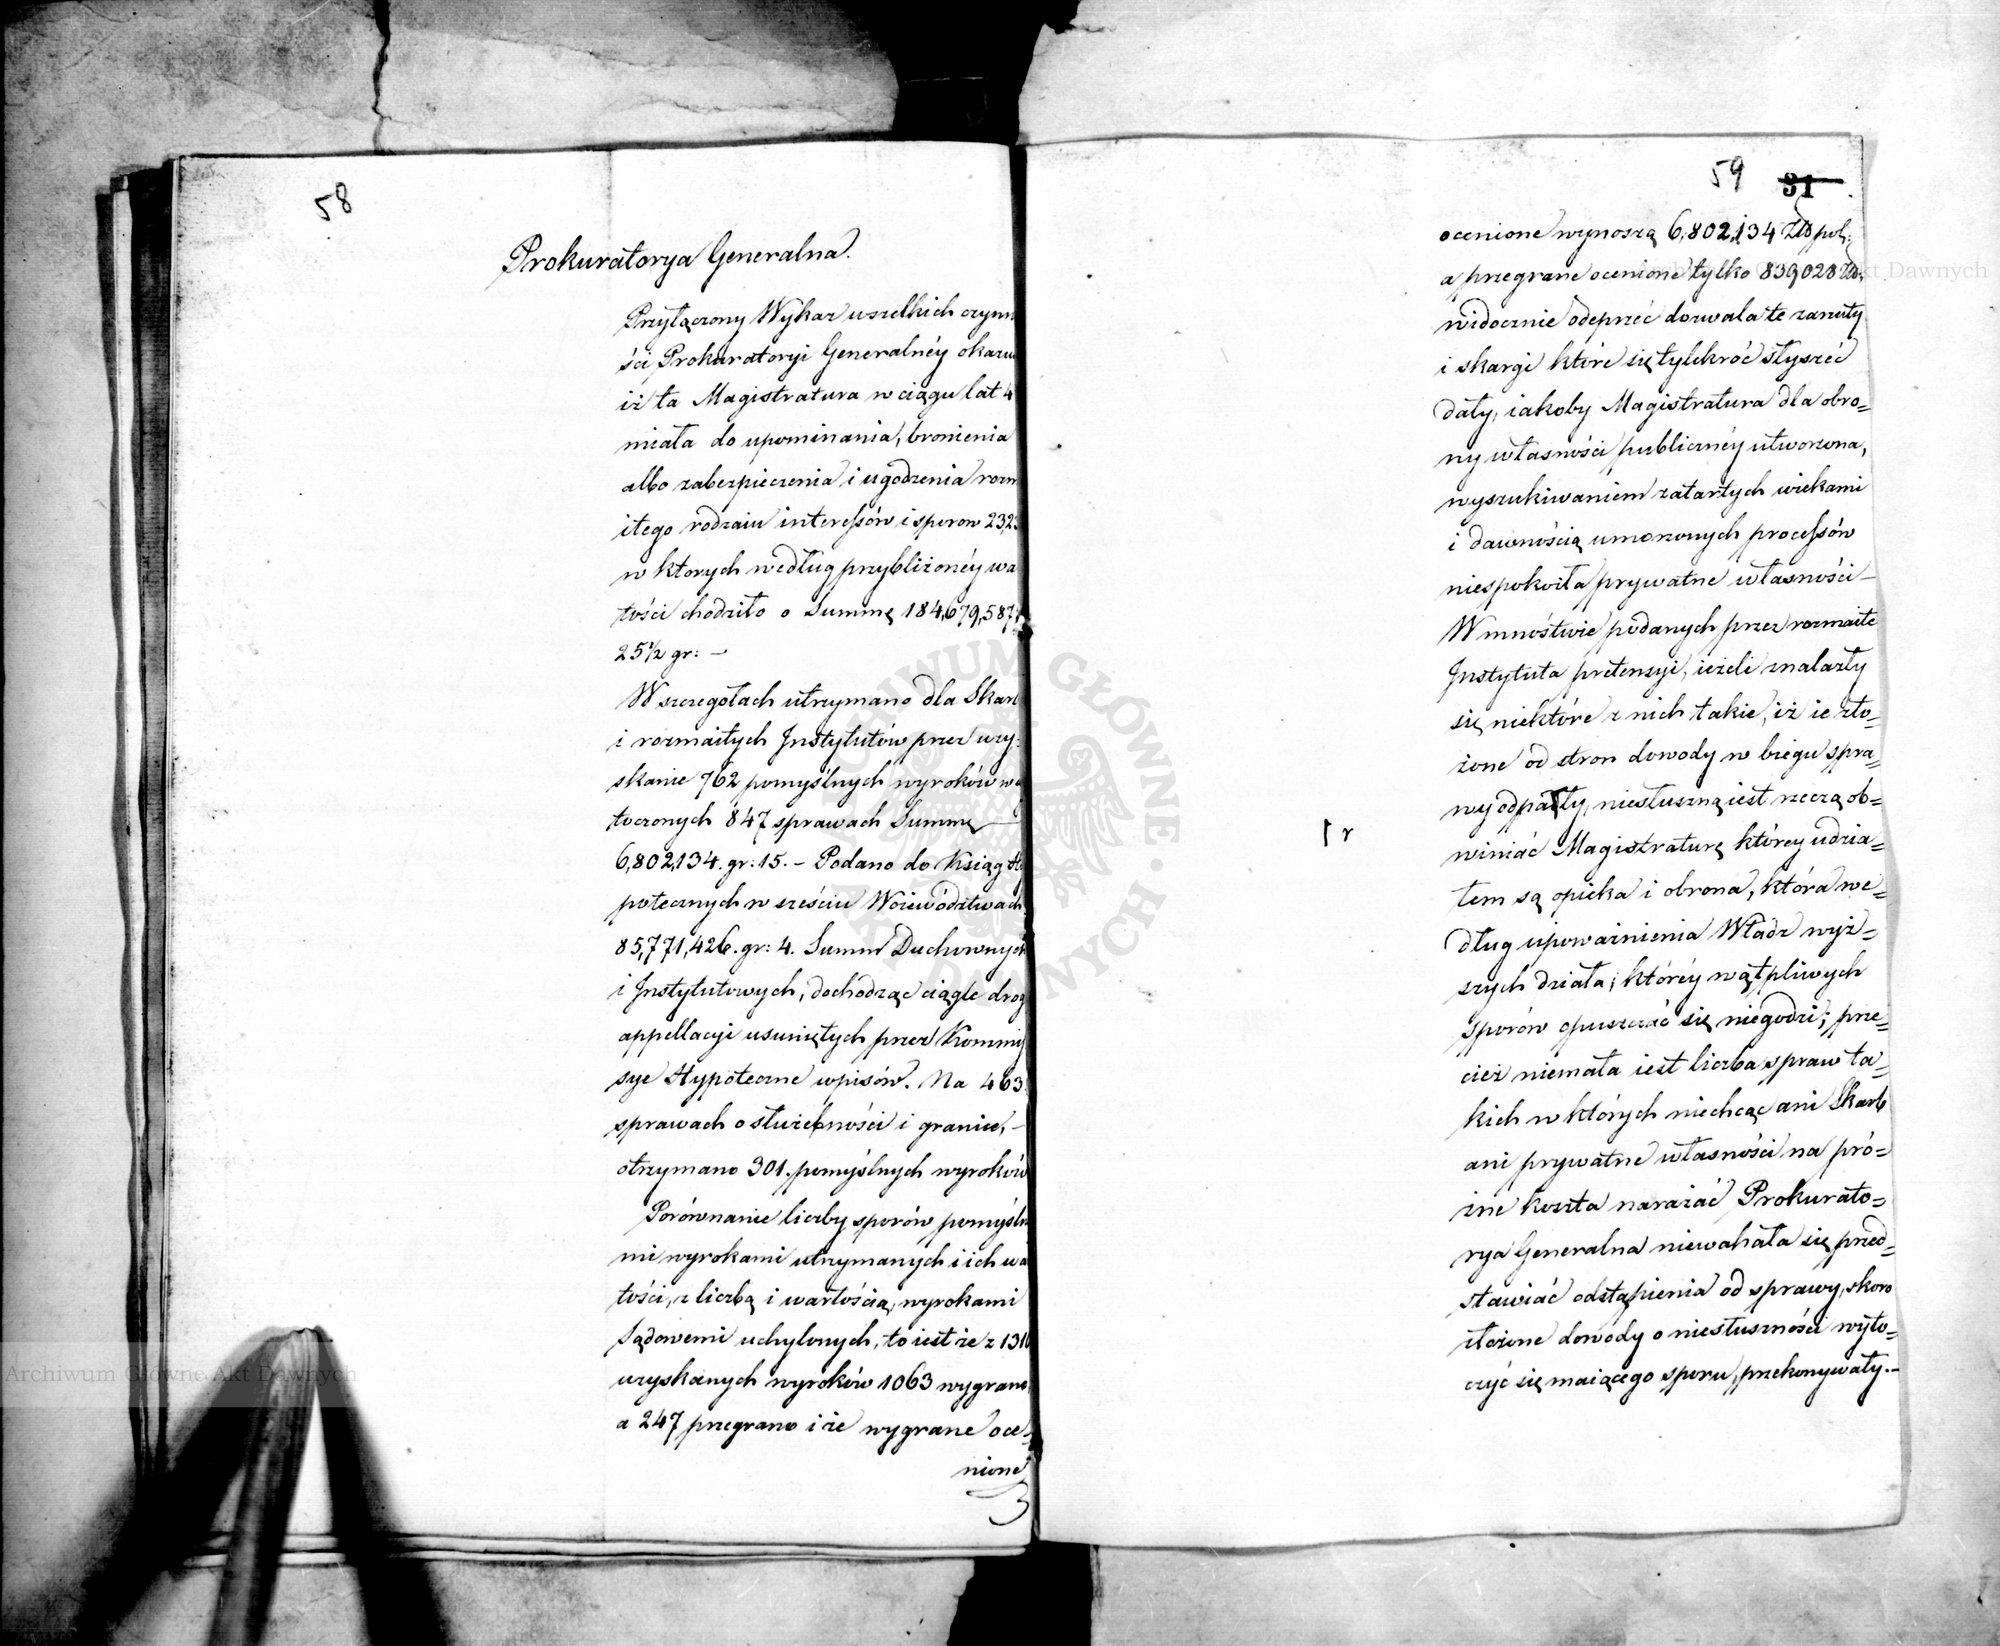 58
Prokuratorya Generalna.
Przyłączony Wykaz wszelkich czynn
ści Prokuratoryi Generalnéy okazu
iż ta Magistratura w ciągu lat 4
miała do upominania, bronienia
albo zabezpieczenia i ugodzenia rozm
itego rodzaiu interessów i sporow 23,2
w ktorych według przybliżonéy wa
tości chodziło o Summę 184,679,587
25½ gr: —
W szczegołach utrzymano dla Skar
i rozmaitych Instytutów przez uzy:
skanie 762 pomyślnych wyroków w
toczonych 847 sprawach Summę
6,802,134. gr: 15. — Podano do Ksiąg Hy
potecznych w sześciu Woiewództwach
85,771,426. gr: 4. Summ Duchownych
i Instytutowych, dochodząc ciągle drog
appellacyi usuniętych przez Kommis
sye Hypoteczne wpisów. Na 463
sprawach o służebności i granice, —
otrzymano 301. pomyślnych wyroków
Porównanie liczby sporów pomyśln
mi wyrokami utrzymanych i ich wa
tości, z liczbą i wartością, wyrokami
Sądowemi uchylonych, to iest że z 1310
uzyskanych wyroków 1063 wygrano,
a 247 przegrano i że wygrane oce-
nione
59
31
ocenione wynoszą 6,802,134 Złł pol:
a przegrane ocenione tylko 839,028 Zł:
widocznie odeprzeć dozwala te zarzuty
i skargi które się tylekroć słyszeć
dały, iakoby Magistratura dla obro=
ny własności publicznéy utworzona,
wyszukiwaniem zatartych wiekami
i dawnością umorzonych processów
niespokoiła prywatne własności —
W mnóstwie podanych przez rozmaite
Instytuta pretensyi, ieżeli znalazły
się niektóre z nich takie, iż ie zło=
żone od stron dowody w biegu spra=
wy odparły, niesłuszną iest rzeczą ob=
winiać Magistraturę którey udzia=
łem są opieka i obrona, która we=
dług upoważnienia Władz wyż=
szych działa; któréy wątpliwych
sporów opuszczać się niegodzi; prze=
cież niemała iest liczba spraw ta=
kich w których niechcąc ani Skarb
ani prywatne własności na pró=
żne koszta narażać Prokurato=
rya Generalna niewahała się przed=
stawiać odstąpienia od sprawy, skoro
złożone dowody o niesłuszności wyto=
czyć się maiącego sporu, przekonywały. —
Archiwum Główne Akt Dawnych